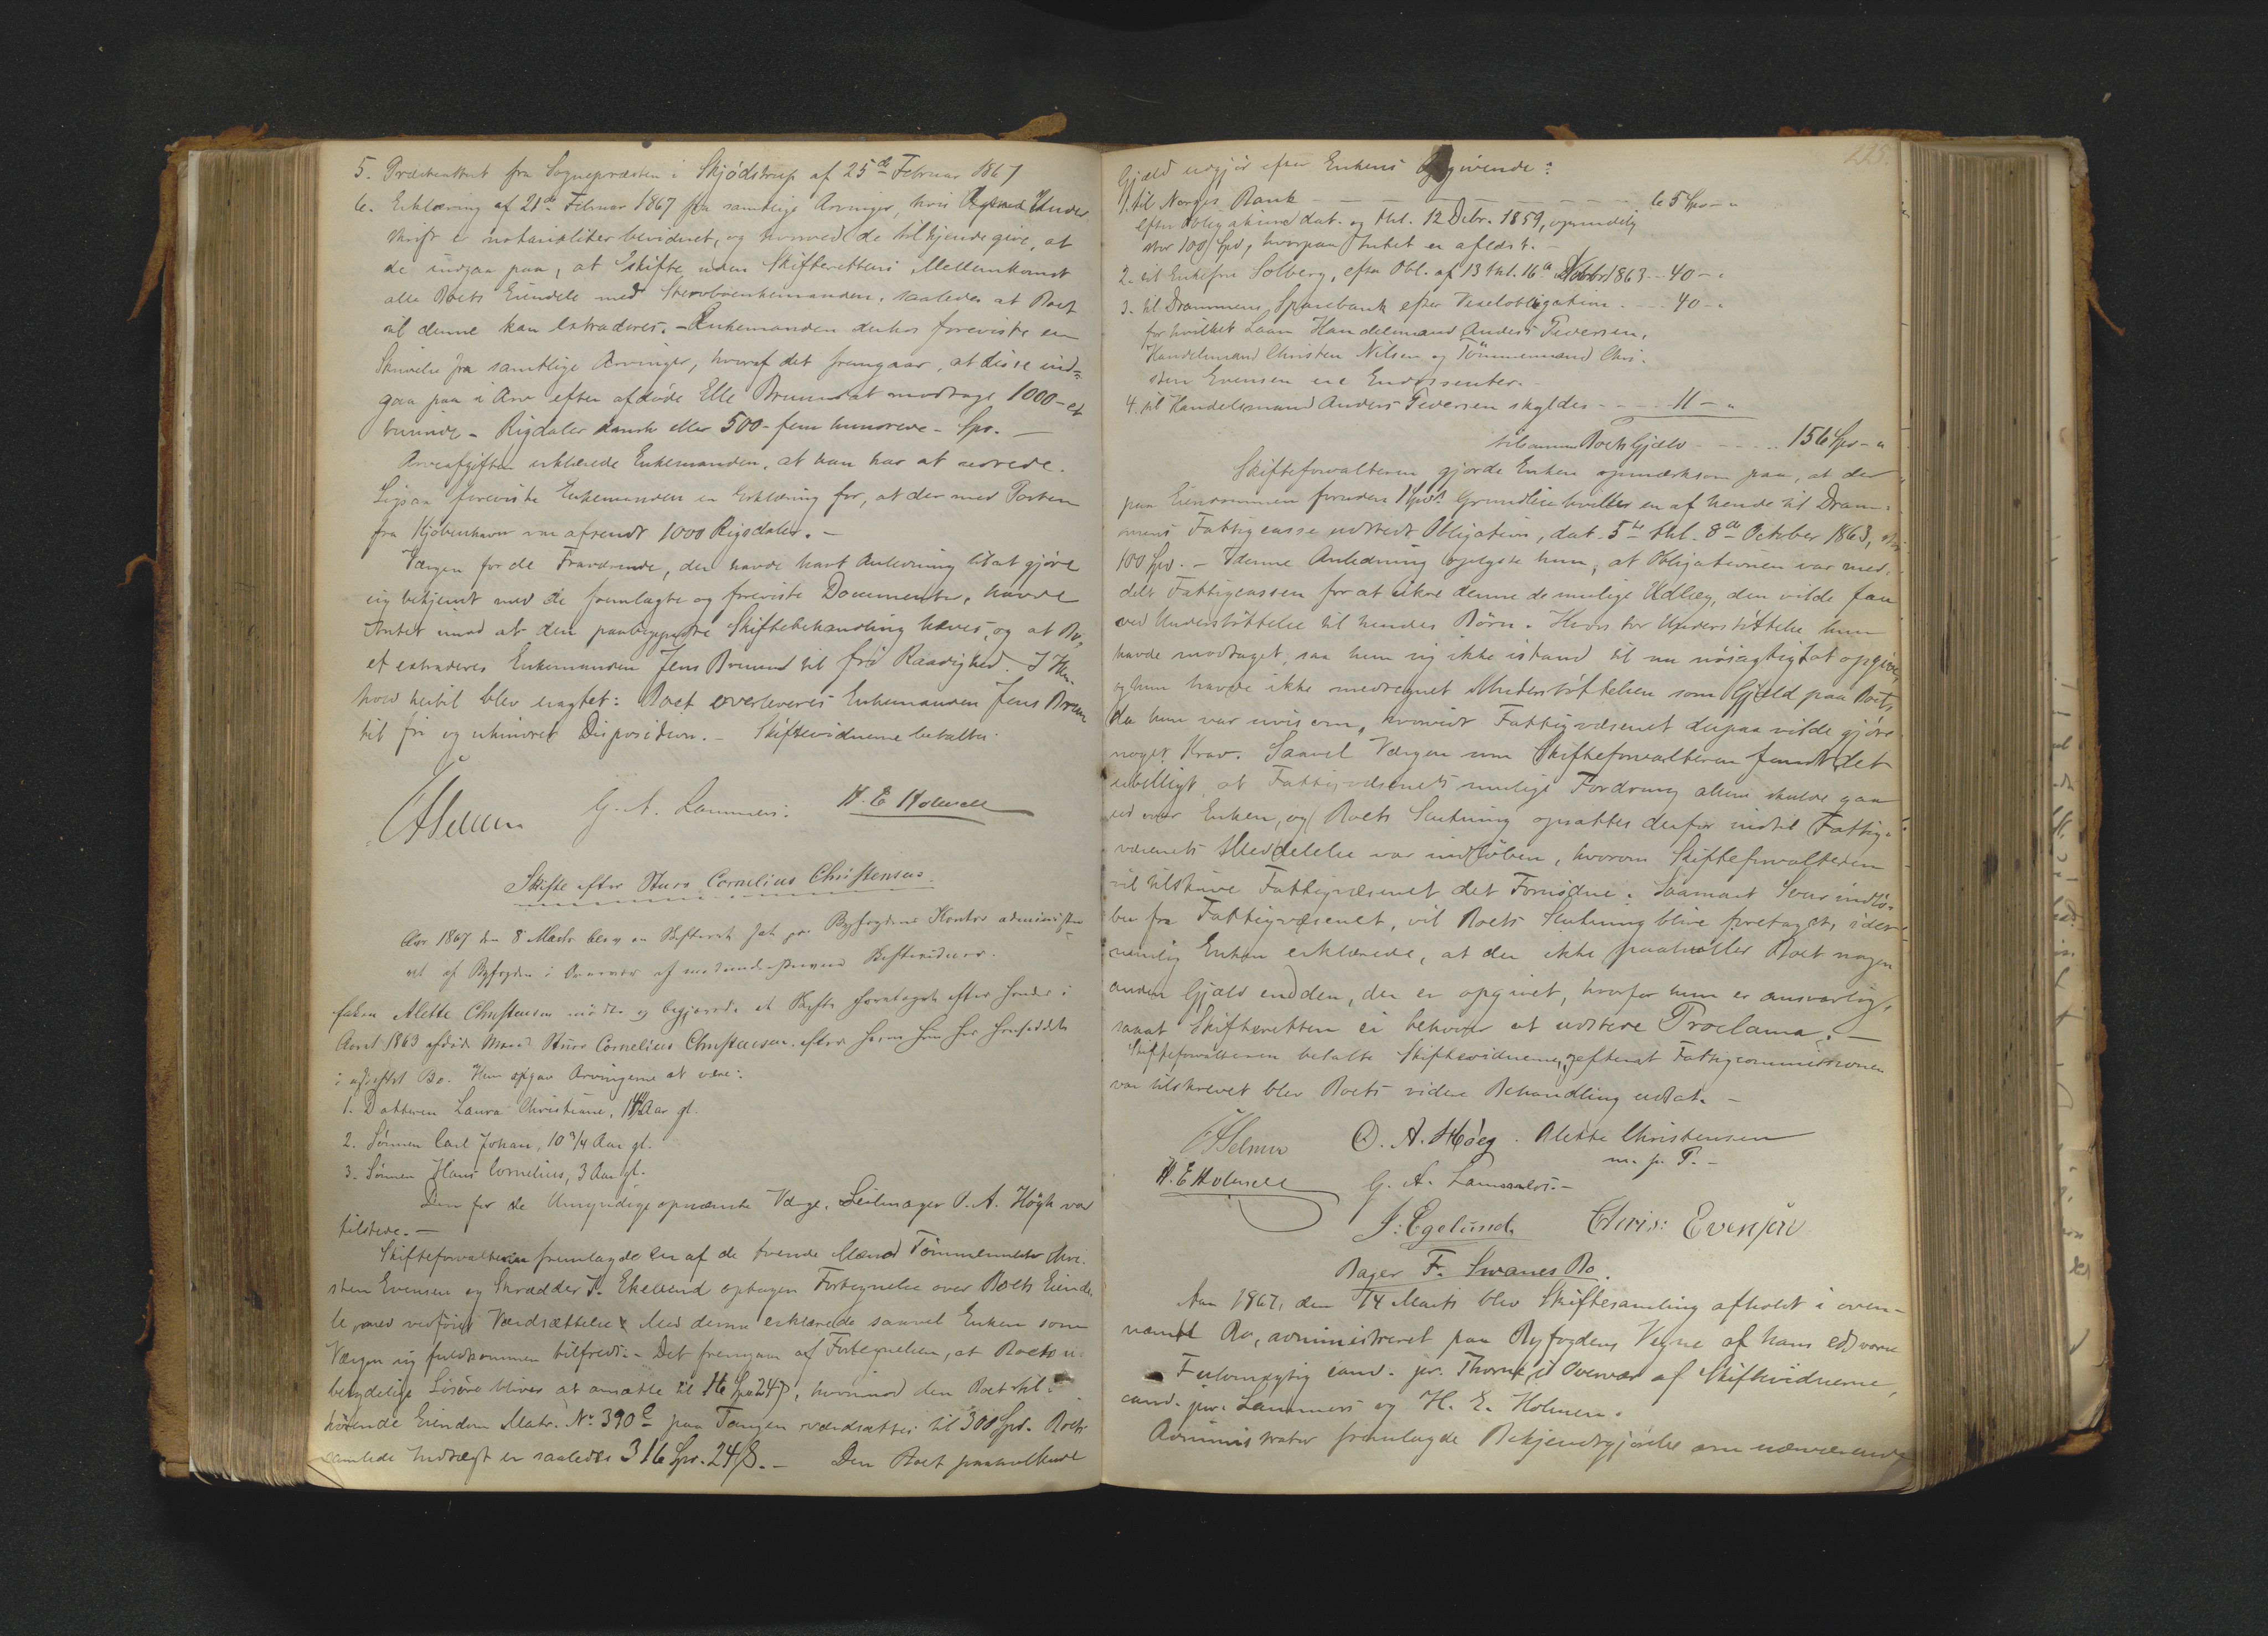 5. Præsteattest fra Sognepræsten i Skjödstrup af 25de Februar 1867
6. Erklæring af 21de Februar 1867 fra samtlige Arvinger, hvis Under
skrift er notarialiter bevidnet, og hvorved de tilkjendegive, at
de indgaa paa, at skifte uden Skifterettens Mellemkomst
alle Boets Eiendele med Stervboenkemanden, saaledes at Boet
til denne kan extraderes. - Enkemanden derhos foreviste en
Skrivelse fra samtlige Arvinger, hvoraf det fremgaar, at disse ind=
gaa paa i Arv efter afdöde Elle Bruun at modtage 1000 - et
tusinde - Rigdaler dansk eller 500 - fem hundrede - Spd. -
Arveafgiften erklærede Enkemanden, at han har at udrede.
Ligsaa foreviste Enkemanden en Erklæring for, at der med Posten
fra Kjöbenhavn var afsendt 1000 Rigsdaler. -
Værgen for de Fraværende, der havde havt Anledning til at gjöre
sig bekjendt med de fremlagte og foreviste Documenter, havde
Intet imod at den paabegyndte Skiftebehandling hæves, og at Bo,
et extraderes Enkemanden Jens Bruun til fri Raadighed. I Hen-
hold hertil blev eragtet: Boet overleveres Enkemanden Jens Bruun
til fri og uhindret Disposition. - Skiftevidnerne betaltes.
G. A. Lammers. H. E. Holmsen
Skifte efter Sturs Cornelius Christensen.
Aar 1867 den 8 Marts blev en Skifteret sat paa Byfogdens Kontor administre
ret af Byfogden i Overvær af medunderskrevne Skiftevidner.
Enken Alette Christensen mödte og begjærede et Skifte foretaget efter hendes i
Aaret 1863 afdöde Mand Sturs Cornelius Christensen, efter hvem hun har hensiddet
i uskiftet Bo. Hun opgav Arvingerne at være:
1. Datteren Laura Christiane, 14 Aar gl.
2. Sönnen Carl Johan, 10 3/4 Aar gl.
3. Sönnen Hans Cornelius, 3 Aar gl.
Den for de Umyndige opnævnte Værge, Seilmager O. A. Högh var
tilstede. -
Skifteforvalteren fremlagde en af de tvende Mænd Tömmermester Chri-
sten Evensen og Skrædder J. Ekelund optagen Fortegnelse over Boets Eiende
le, med vedföiet Værdsættelse. Med denne erklærede saavel Enken som
Værgen sig fuldkommen tilfreds. - Det fremgaar af Fortegnelsen, at Boets u-
betydelige Lösöre bliver at ansætte til 16 Spd 24 ß, hvorimod den Boet til-
hörende Eiendom Matr. No. 390 paa Tangen værdsættes til 300 Spd. Boets
samlede Indtægt er saaledes 316 Spd. 24 ß. - Den Boet paahvilende
225.
Gjæld udgjör efter Enkens Opgivende:
1. til Norges Bank - - - - - - - - 65 Spd - "
efter Obligation dat. og thl. 12 Debr. 1859, oprindelig
stor 100 Spd, hvorpaa Intet er afledst. -
2. til Enkefru Solberg, efter Obl. af 13 thl. 16de 1863 - - 40 - "
3. til Drammens Sparebank efter Vexelobligation - - - 40 - "
for hvilket Laan Handelsmand Anders Pedersen,
Handelsmand Christen Nilsen og Tömmermand Chri-
sten Evensen ere Endossenter. -
4. til Handelsmand Anders Pedersen skyldes - - - 11 - "
tilsammen Boets Gjæld - - - - 156 Spd - "
Skifteforvalteren gjorde Enken opmærksom paa, at der
paa Eiendommen foruden 1 Spds Grundleie hviler en af hende til Dram-
mens Fattigcasse udstedt Obligation, dat. 5te thl. 8de October 1863, stor
100 Spd. - I denne Anledning oplyste hun, at Obligationen var med-
delt Fattigcassen for at sikre denne de mulige Udlæg, den vilde faa
ved Understöttelse til hendes Börn. Hvor stor Understöttelse hun
havde modtaget, saa hun sig ikke istand til nu nöiagtigt at opgive,
og hun havde ikke medregnet Understöttelsen som Gjæld paa Boet,
da hun var uvis om, hvorvidt Fattigvæsenet derpaa vilde gjöre
noget Krav. Saavel Værgen som Skifteforvalteren fandt det
ubilligt, at Fattigvæsenets mulige Fordring alene skulde gaa
ud over Enken, og Boets Slutning opsattes derfor indtil Fattig-
væsenets Meddelelse var indlöben, hvorom Skifteforvalteren
vil tilskrive Fattigvæsenet det Fornödne. Saasnart Svar indlö-
ber fra Fattigvæsenet, vil Boets Slutning blive foretaget, idet
nemlig Enken erklærede, at der ikke paahviler Boet nogen
anden Gjæld end den, der er opgivet, hvorfor hun er ansvarlig,
samt Skifteretten ei behöver at udstede Proclama. -
Skifteforvalteren betalte Skiftevidnerne, og efterat Fattigcommissionen
var tilskrevet blev Boets videre Behandling udsat. -
O. A. Höeg. Alette Christensen
m. p. P. -
H. E. Holmsen G. A. Lammers. -
J. Egelund Chris: Evensen
Bager F. Swanes Bo.
Aar 1867, den 14 Marts blev Skiftesamling afholdt i oven-
nævnte Bo, administreret paa Byfogdens Vegne af hans edsvorne
Fuldmægtig cand. jur. Thorne i Overvær af Skiftevidnerne,
cand. jur. Lammers og H. E. Holmsen.
Administrator fremlagde Bekjendtgjörelse om nærværende